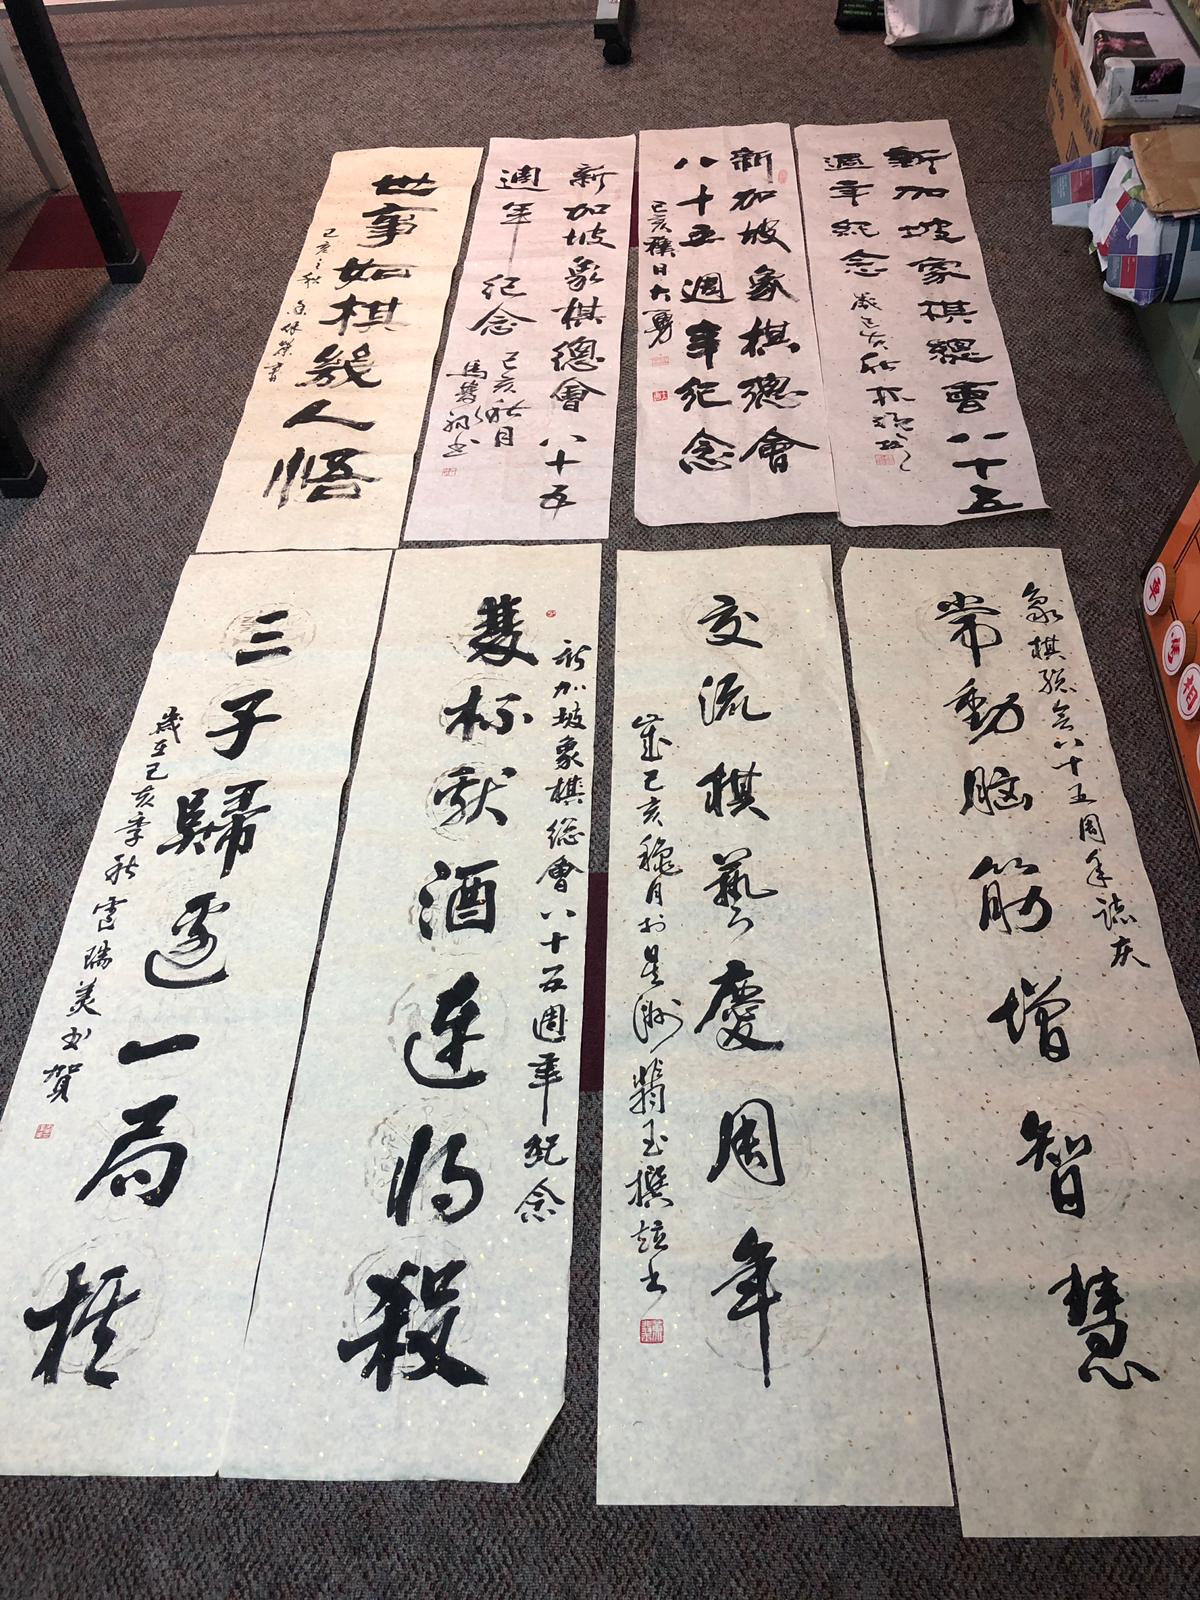 新加坡象棋總會八十五
週年紀念
歲己亥秋
新加坡象棋總會
八十五週年紀念
己亥穐日大勇
新加坡象棋總會八十五
週年
紀念
己亥秋月
世事如棋幾人悟
己亥之秋
書
象棋總会八十五周年誌庆
常動脑筋增智慧
交流棋藝慶周年
歲己亥穐月於星洲翡玉撰
新加坡象棋総會八十五週年紀念
雙杯獻酒连将殺
三子歸邊一局
歲在己亥季秋
瑞美书賀